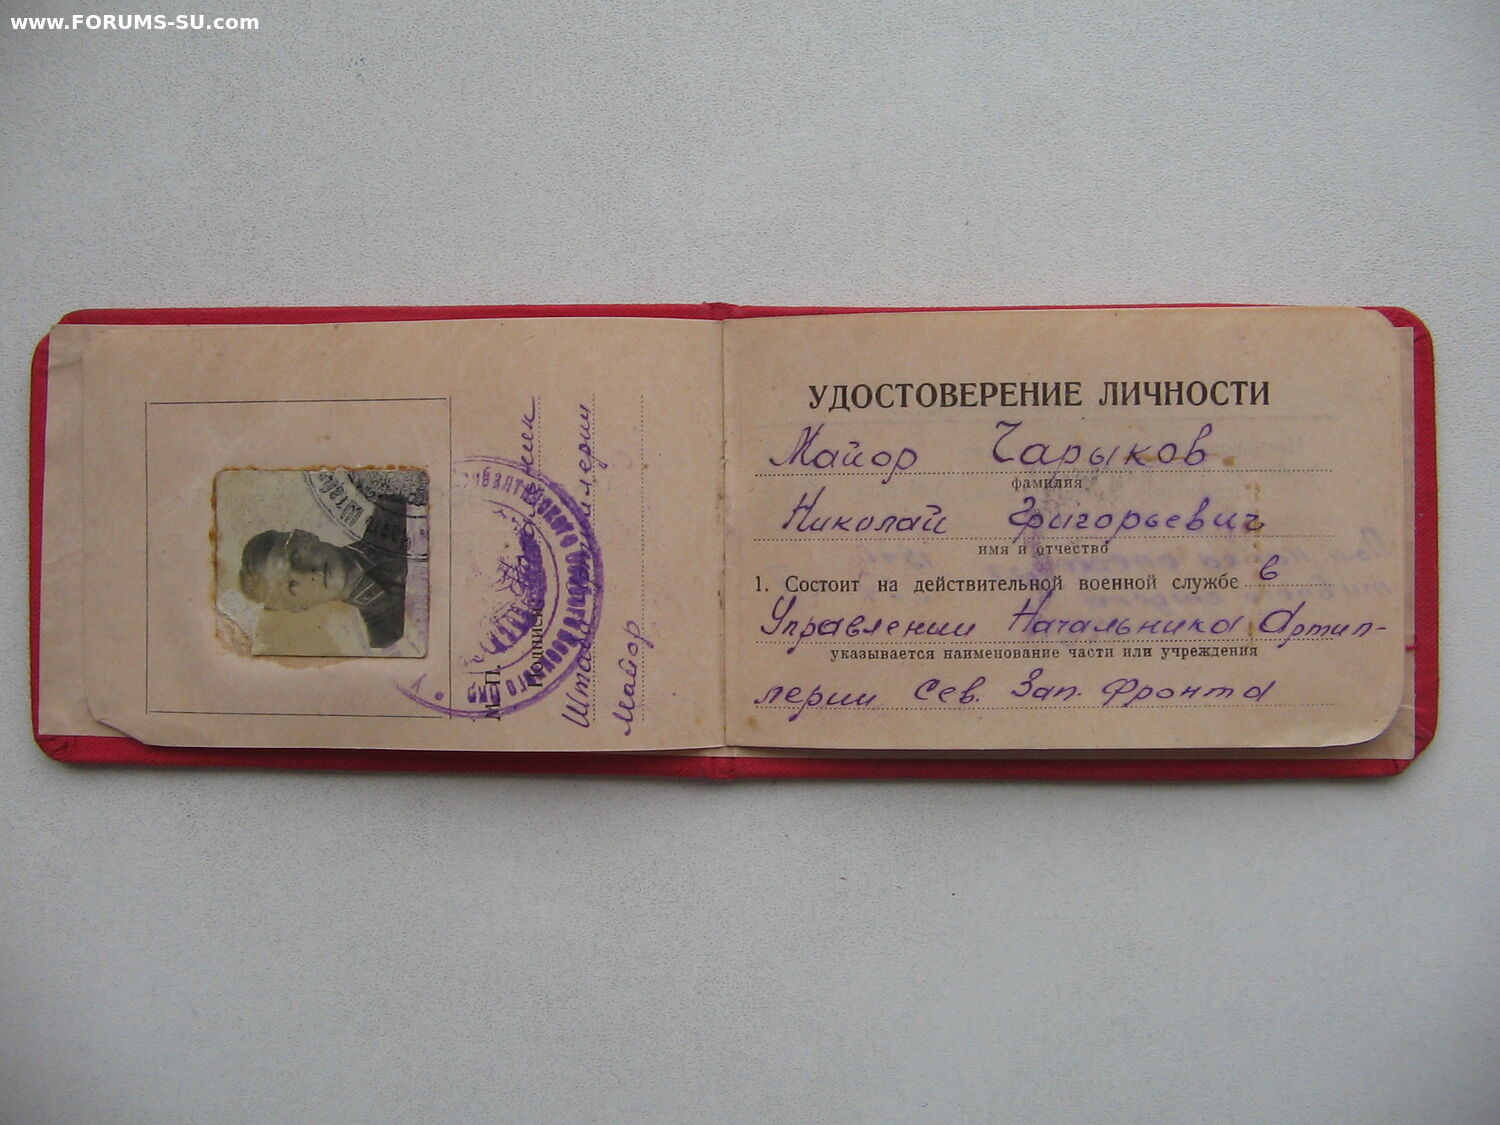 www.FORUMS-SU.com
М.П.
Подпись
Начальник
Штаба Артиллерии
Майор
УДОСТОВЕРЕНИЕ ЛИЧНОСТИ
Майор Чарыков
фамилия
Николай Григорьевич
имя и отчество
1. Состоит на действительной военной службе в
Управлении Начальника Артил-
указывается наименование части или учреждения
лерии Сев. Зап. Фронта